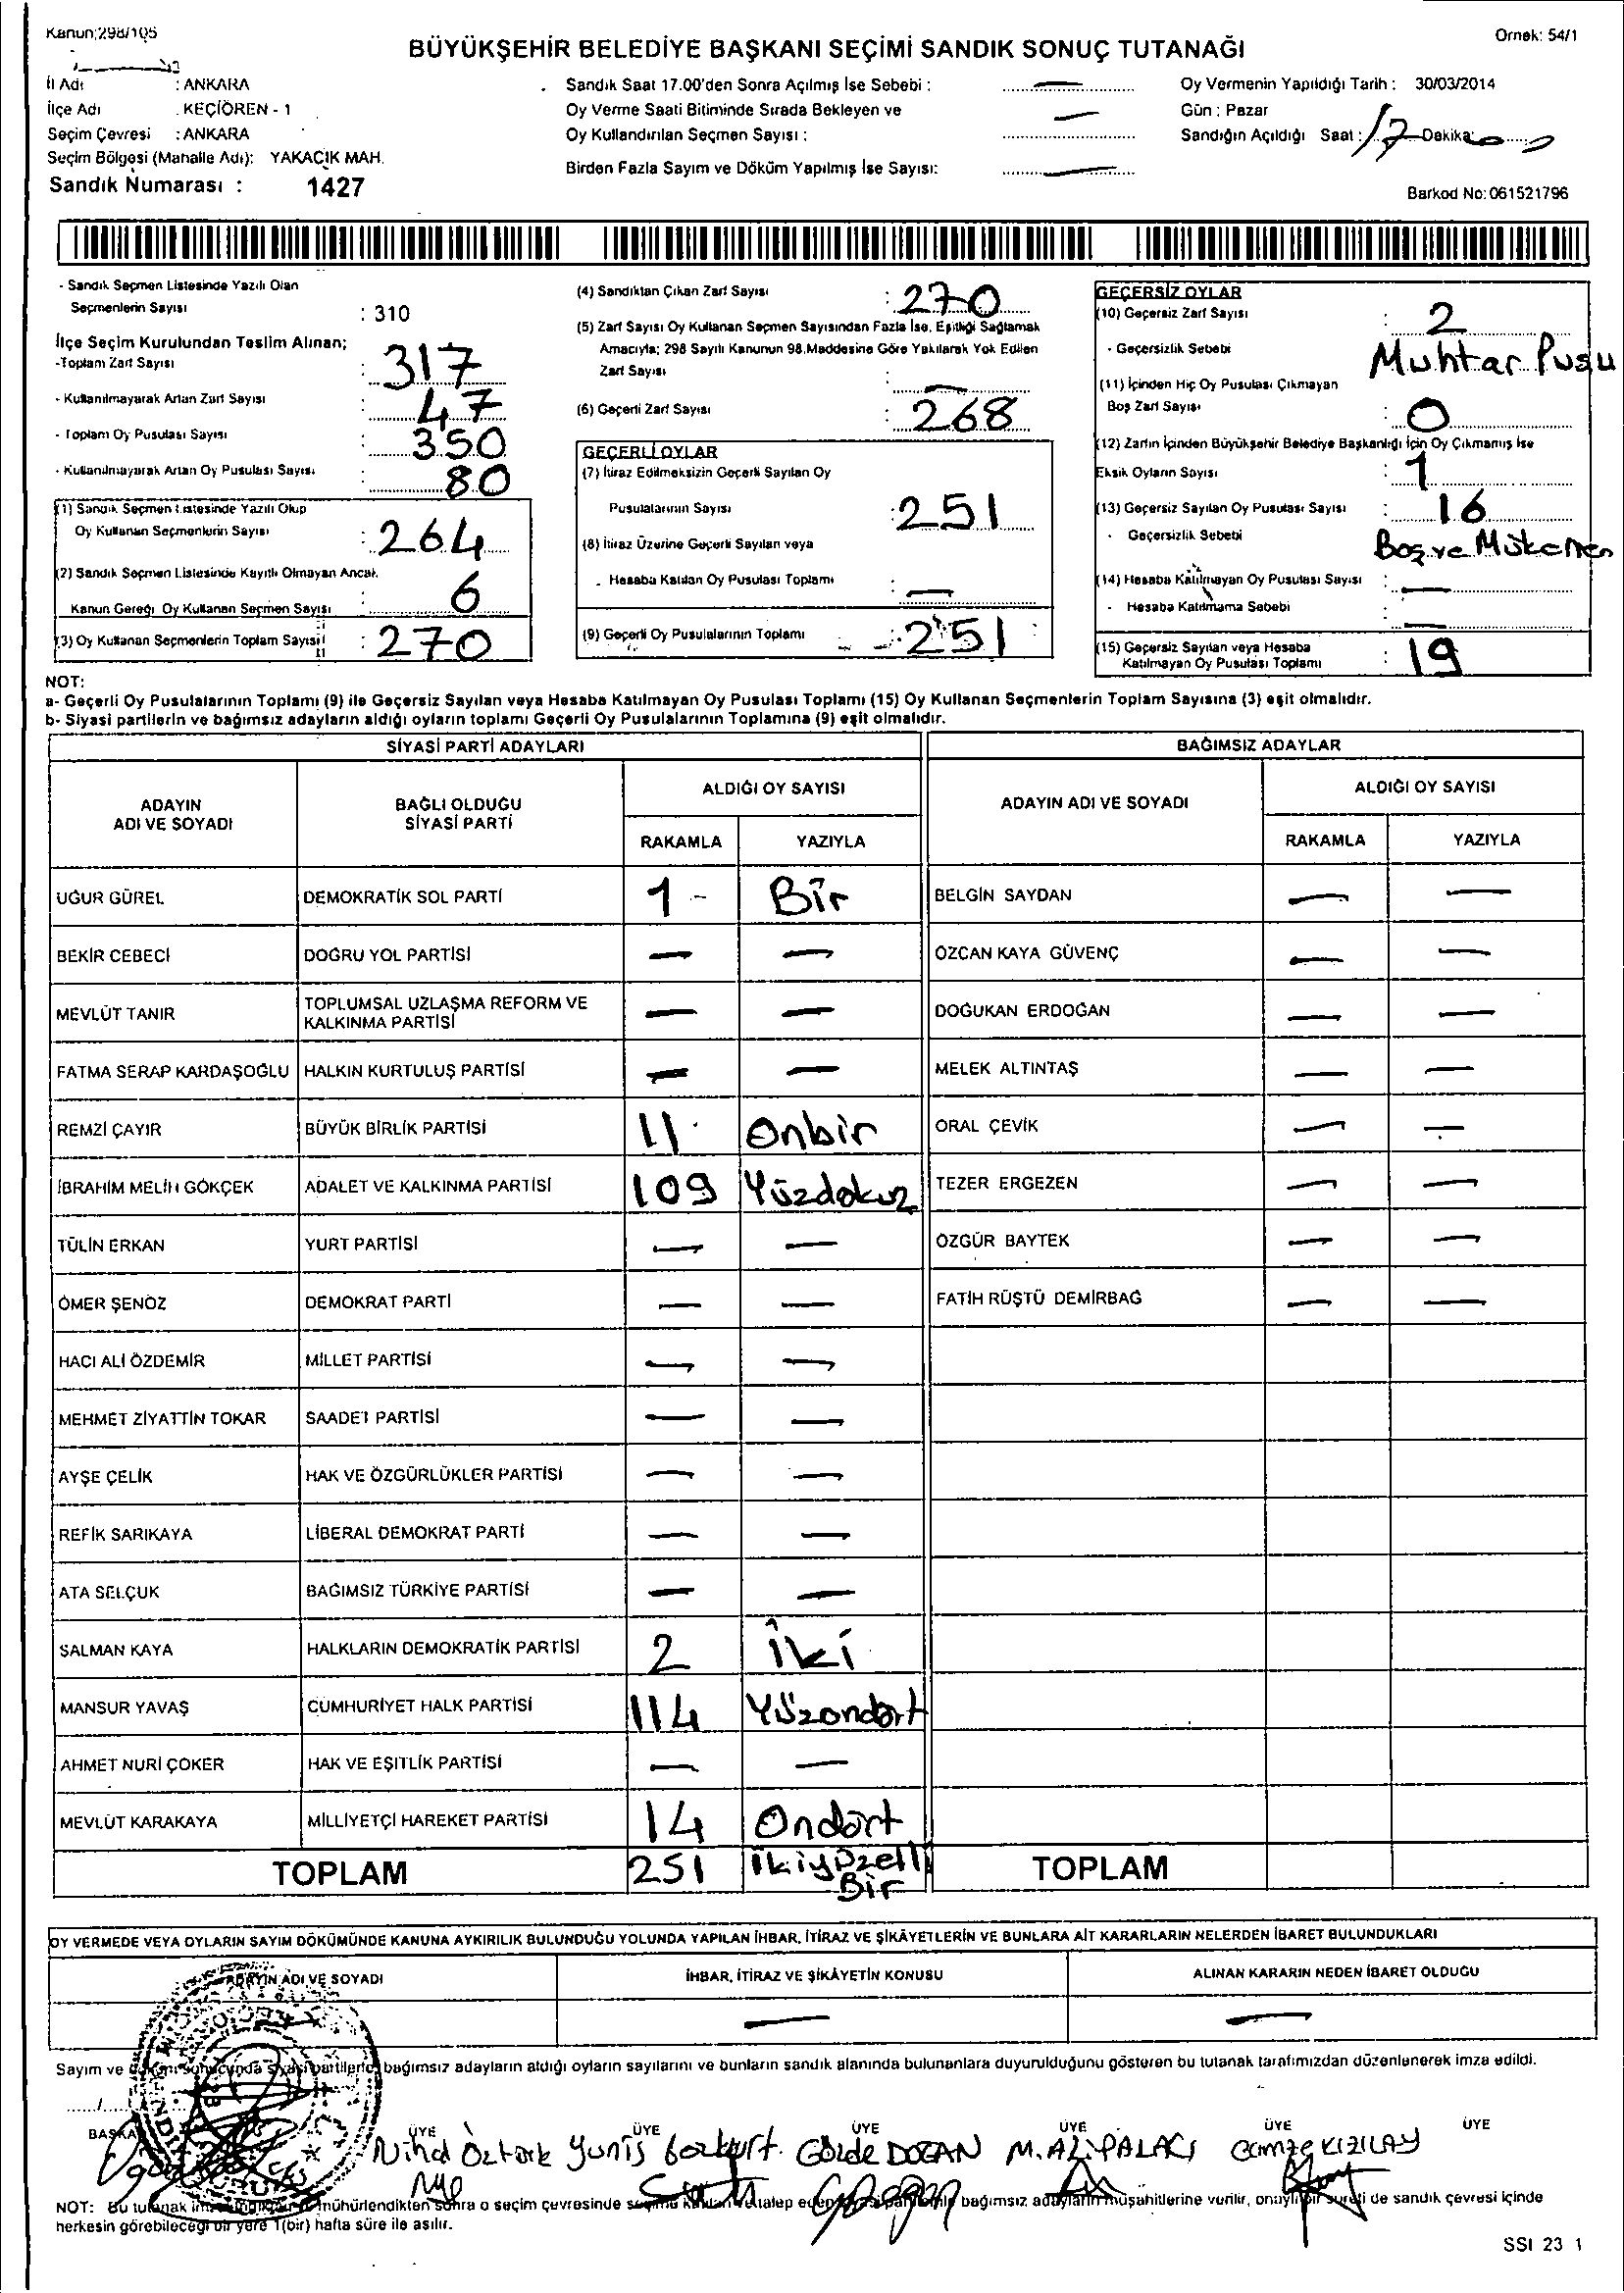 Kanun:298/105
Örnek: 54/1
BÜYÜKŞEHİR BELEDİYE BAŞKANI SEÇİMİ SANDIK SONUÇ TUTANAĞI
İl Adı : ANKARA
İlçe Adı : KEÇİÖREN - 1
Seçim Çevresi : ANKARA
Seçim Bölgesi (Mahalle Adı): YAKACIK MAH.
Sandık Numarası : 1427
Sandık Saat 17.00'den Sonra Açılmış İse Sebebi : —
Oy Verme Saati Bitiminde Sırada Bekleyen ve
Oy Kullandırılan Seçmen Sayısı : —
Birden Fazla Sayım ve Döküm Yapılmış İse Sayısı: —
Oy Vermenin Yapıldığı Tarih : 30/03/2014
Gün : Pazar
Sandığın Açıldığı Saat : 17 Dakika:
Barkod No: 061521796
- Sandık Seçmen Listesinde Yazılı Olan
Seçmenlerin Sayısı : 310
İlçe Seçim Kurulundan Teslim Alınan;
-Toplam Zarf Sayısı : 317
- Kullanılmayarak Artan Zarf Sayısı : 47
- Toplam Oy Pusulası Sayısı : 350
- Kullanılmayarak Artan Oy Pusulası Sayısı : 80
(1) Sandık Seçmen Listesinde Yazılı Olup
Oy Kullanan Seçmenlerin Sayısı : 264
(2) Sandık Seçmen Listesinde Kayıtlı Olmayan Ancak
Kanun Gereği Oy Kullanan Seçmen Sayısı : 6
(3) Oy Kullanan Seçmenlerin Toplam Sayısı : 270
(4) Sandıktan Çıkan Zarf Sayısı : 270
(5) Zarf Sayısı Oy Kullanan Seçmen Sayısından Fazla İse, Eşitliği Sağlamak
Amacıyla; 298 Sayılı Kanunun 98.Maddesine Göre Yakılarak Yok Edilen
Zarf Sayısı : —
(6) Geçerli Zarf Sayısı : 268
GEÇERLİ OYLAR
(7) İtiraz Edilmeksizin Geçerli Sayılan Oy
Pusulalarının Sayısı : 251
(8) İtiraz Üzerine Geçerli Sayılan veya
- Hesaba Katılan Oy Pusulası Toplamı : —
(9) Geçerli Oy Pusulalarının Toplamı : 251
GEÇERSİZ OYLAR
(10) Geçersiz Zarf Sayısı : 2
- Geçersizlik Sebebi : Muhtar Pusu
(11) İçinden Hiç Oy Pusulası Çıkmayan
Boş Zarf Sayısı : 0
(12) Zarfın İçinden Büyükşehir Belediye Başkanlığı İçin Oy Çıkmamış İse
Eksik Oyların Sayısı : 1
(13) Geçersiz Sayılan Oy Pusulası Sayısı : 16
- Geçersizlik Sebebi Boş ve Mükerrer
(14) Hesaba Katılmayan Oy Pusulası Sayısı : —
- Hesaba Katılmama Sebebi : —
(15) Geçersiz Sayılan veya Hesaba
Katılmayan Oy Pusulası Toplamı : 19
NOT:
a- Geçerli Oy Pusulalarının Toplamı (9) ile Geçersiz Sayılan veya Hesaba Katılmayan Oy Pusulası Toplamı (15) Oy Kullanan Seçmenlerin Toplam Sayısına (3) eşit olmalıdır.
b- Siyasi partilerin ve bağımsız adayların aldığı oyların toplamı Geçerli Oy Pusulalarının Toplamına (9) eşit olmalıdır.
SİYASİ PARTİ ADAYLARI BAĞIMSIZ ADAYLAR
ADAYIN ADI VE SOYADI BAĞLI OLDUĞU SİYASİ PARTİ ALDIĞI OY SAYISI ADAYIN ADI VE SOYADI ALDIĞI OY SAYISI
RAKAMLA YAZIYLA RAKAMLA YAZIYLA
UĞUR GÜREL DEMOKRATİK SOL PARTİ 1 - Bir BELGİN SAYDAN — —
BEKİR CEBECİ DOĞRU YOL PARTİSİ — — ÖZCAN KAYA GÜVENÇ — —
MEVLÜT TANIR TOPLUMSAL UZLAŞMA REFORM VE KALKINMA PARTİSİ — — DOĞUKAN ERDOĞAN — —
FATMA SERAP KARDAŞOĞLU HALKIN KURTULUŞ PARTİSİ — — MELEK ALTINTAŞ — —
REMZİ ÇAYIR BÜYÜK BİRLİK PARTİSİ 11 Onbir ORAL ÇEVİK — —
İBRAHİM MELİH GÖKÇEK ADALET VE KALKINMA PARTİSİ 109 Yüzdokuz TEZER ERGEZEN — —
TÜLİN ERKAN YURT PARTİSİ — — ÖZGÜR BAYTEK — —
ÖMER ŞENÖZ DEMOKRAT PARTİ — — FATİH RÜŞTÜ DEMİRBAĞ — —
HACI ALİ ÖZDEMİR MİLLET PARTİSİ — —
MEHMET ZİYATTİN TOKAR SAADET PARTİSİ — —
AYŞE ÇELİK HAK VE ÖZGÜRLÜKLER PARTİSİ — —
REFİK SARIKAYA LİBERAL DEMOKRAT PARTİ — —
ATA SELÇUK BAĞIMSIZ TÜRKİYE PARTİSİ — —
SALMAN KAYA HALKLARIN DEMOKRATİK PARTİSİ 2 İki
MANSUR YAVAŞ CUMHURİYET HALK PARTİSİ 114 Yüzondört
AHMET NURİ ÇOKER HAK VE EŞİTLİK PARTİSİ — —
MEVLÜT KARAKAYA MİLLİYETÇİ HAREKET PARTİSİ 14 Ondört
TOPLAM 251 İkiyüzelli Bir TOPLAM
OY VERMEDE VEYA OYLARIN SAYIM DÖKÜMÜNDE KANUNA AYKIRILIK BULUNDUĞU YOLUNDA YAPILAN İHBAR, İTİRAZ VE ŞİKÂYETLERİN VE BUNLARA AİT KARARLARIN NELERDEN İBARET BULUNDUKLARI
ADAYIN ADI VE SOYADI İHBAR, İTİRAZ VE ŞİKÂYETİN KONUSU ALINAN KARARIN NEDEN İBARET OLDUĞU
— —
Sayım ve döküm sonucunda siyasi partilerle, bağımsız adayların aldığı oyların sayılarını ve bunların sandık alanında bulunanlara duyurulduğunu gösteren bu tutanak tarafımızdan düzenlenerek imza edildi.
BAŞKAN ÜYE ÜYE ÜYE ÜYE ÜYE ÜYE
Nihal Öztürk Yunis Bozkurt. Gözde DOĞAN M.ALİ PALACI Gamze KIZILAY
NOT: Bu tutanak mühürlendikten sonra o seçim çevresinde seçime katılan ve talep eden bağımsız adayların müşahitlerine verilir, onaylı bir sureti de sandık çevresi içinde
herkesin görebileceği bir yere 1(bir) hafta süre ile asılır.
SSI 23 1